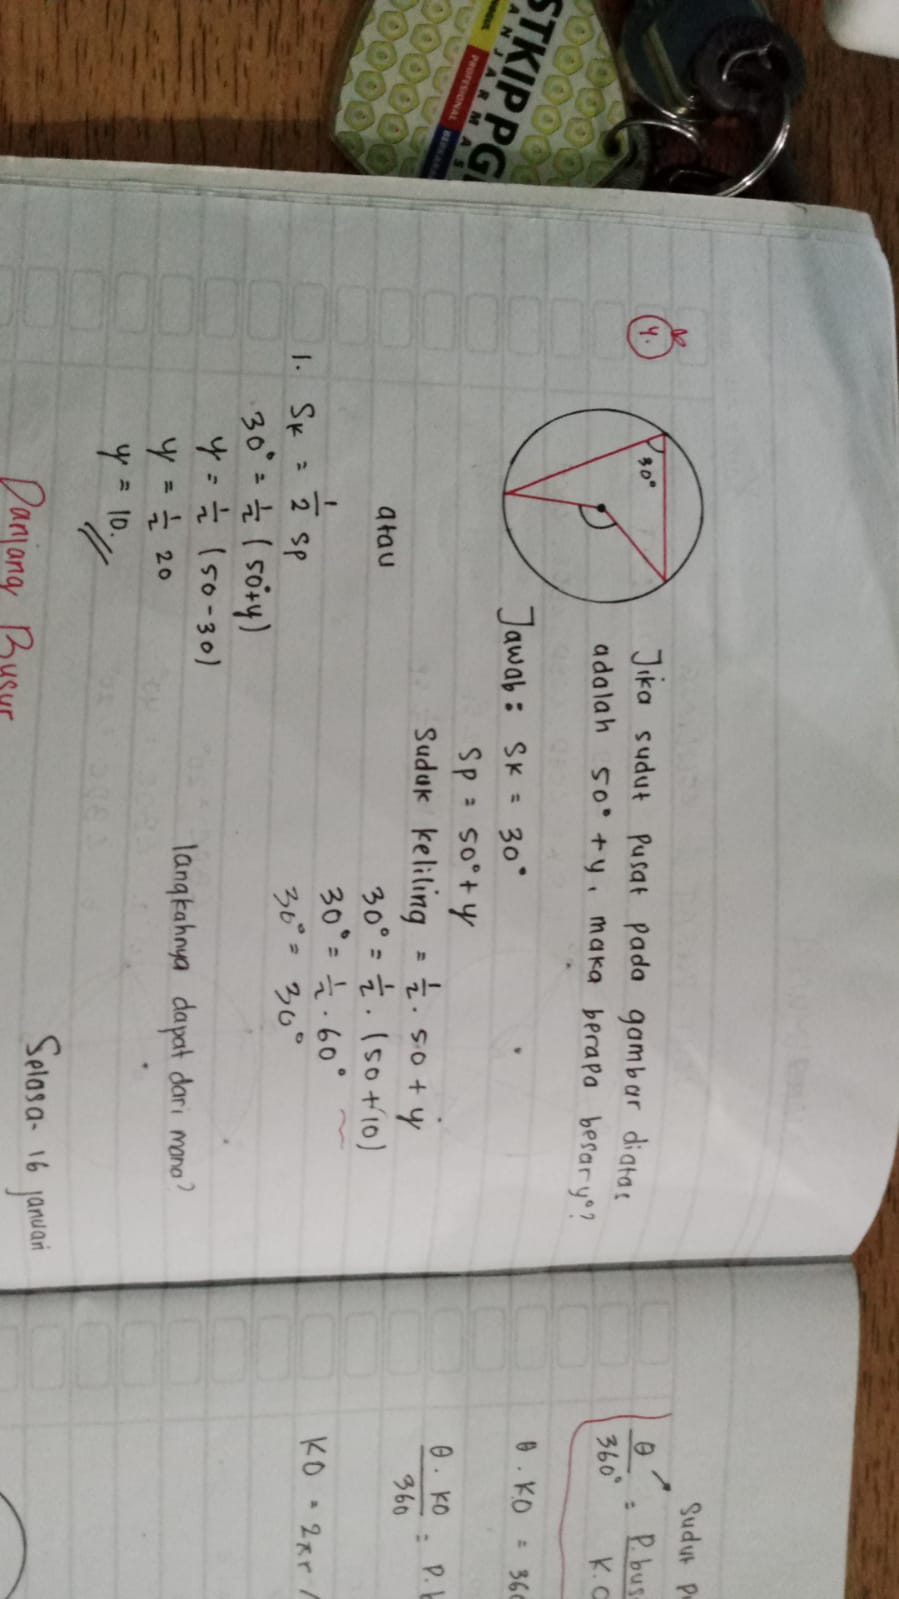 4.
30°
Jika sudut pusat pada gambar diatas
adalah 50° + y, maka berapa besar y°?
Jawab : SK = 30°
SP = 50° + y
Suduk keliling = 1/2 . 50 + y
30° = 1/2 . (50 + 10)
30° = 1/2 . 60°
30° = 30°
atau
1. SK = 1/2 SP
30° = 1/2 (50° + y)
y = 1/2 (50 - 30)
y = 1/2 20
y = 10.
langkahnya dapat dari mana?
Selasa - 16 januari
Panjang Busur
Sudut
θ/360° = P.
θ . KO =
θ . KO / 360 =
KO = 2πr
STKIP PG
ANJARMAS
PROFESIONAL